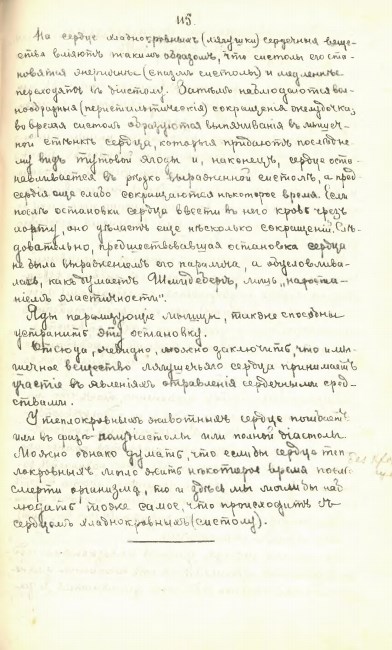 115.
На сердце хладнокровныхъ (лягушки) сердечныя веще-
ства вліяютъ такимъ образомъ, что систолы его ста-
новятся энергичнѣе (спазмъ систолы) и медленнѣе
переходятъ въ діастолу. Затѣмъ наблюдаются вол-
нообразныя (перистальтическія) сокращенія желудочка;
во время систолы образуются выпячиванія въ мышеч-
ной стѣнкѣ сердца, которыя придаютъ послѣдне-
му видъ тутовой ягоды и, наконецъ, сердце оста-
навливается въ рѣзко выраженной систолѣ, а пред-
сердія еще слабо сокращаются нѣкоторое время. Если
послѣ остановки сердца ввести въ него кровь чрезъ
аорту, оно дѣлаетъ еще нѣсколько сокращеній. Слѣ-
довательно, предшествовавшая остановка сердца
не была выраженіемъ его паралича, а обусловлива-
лась, какъ думаетъ Шмидебергъ, лишь „нараста-
ніемъ эластичности".
Яды парализующіе мышцы, также способны
устранить эту остановку.
Отсюда, очевидно, можно заключить, что и мы-
шечное вещество лягушечьяго сердца принимаетъ
участіе въ явленіяхъ отравленія сердечными сред-
ствами.
У теплокровныхъ животныхъ сердце погибаетъ
или въ фазѣ полудіастолы или полной діастолы.
Можно однако думать, что если бы сердце теп-
локровныхъ могло жить нѣкоторое время послѣ
смерти организма, то и здѣсь мы могли бы наб-
людать тоже самое, что происходитъ съ
сердцемъ хладнокровныхъ (систолу).